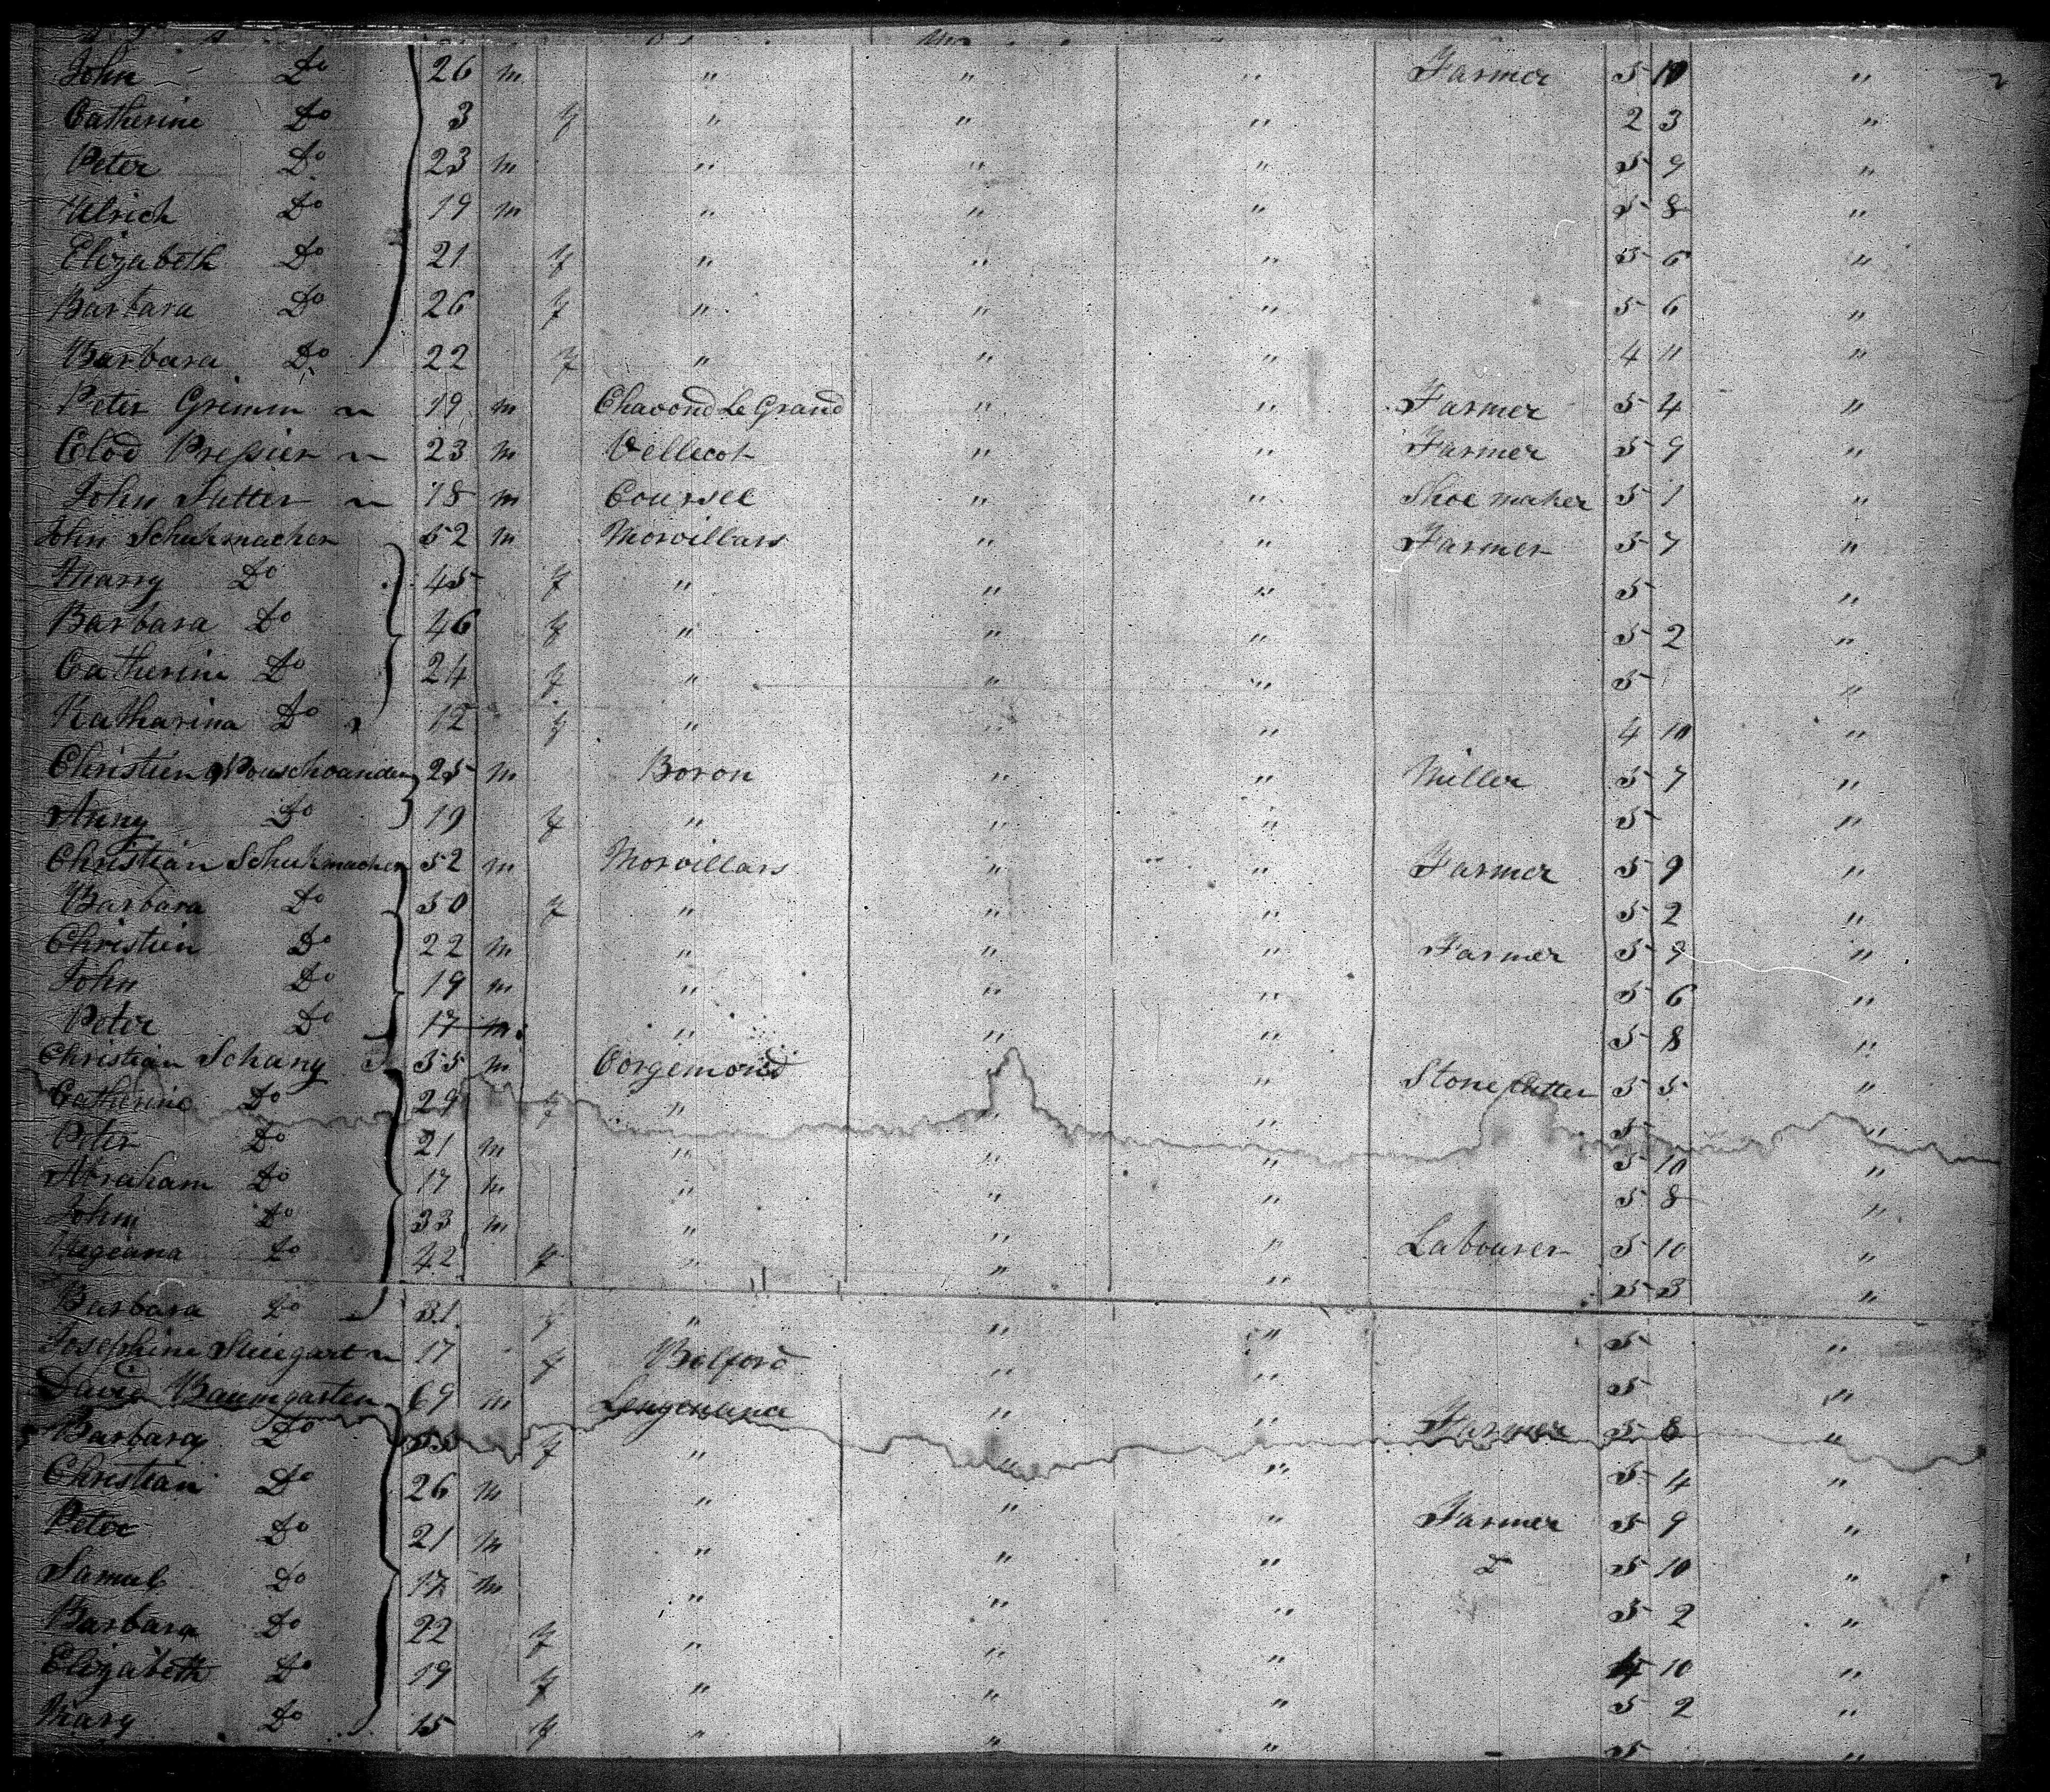 John Do 26 m " " " Farmer 5 10 "
Catherine Do 3 f " " " 2 3 "
Peter Do 23 m " " " 5 9 "
Ulrich Do 19 m " " " 5 8 "
Elizabeth Do 21 f " " " 5 6 "
Barbara Do 26 f " " " 5 6 "
Barbara Do 22 f " " " 4 11 "
Peter Grimm 19 m Chavond Le Grand " " Farmer 5 4 "
Clod Pressier 23 m Vellecot " " Farmer 5 9 "
John Sutter 18 m Coursel " " Shoe maker 5 1 "
John Schuhmacher 52 m Morvillars " " Farmer 5 7 "
Mary Do 45 f " " " 5 "
Barbara Do 46 f " " " 5 2 "
Catherine Do 24 f " " " 5 "
Katharina Do 12 f " " " 4 10 "
Christien 25 m Boron " " Miller 5 7 "
Anny Do 19 f " " " 5 "
Christian Schuhmacher 52 m Morvillars " " Farmer 5 9 "
Barbara Do 50 f " " " 5 2 "
Christien Do 22 m " " " Farmer 5 9 "
John Do 19 m " " " 5 6 "
Peter Do 17 m " " " 5 8 "
Christian Schany 35 m Corgemond " " Stone Cutter 5 5 "
Catherine Do 29 f " " " 5 "
Peter Do 21 m " " " 5 10 "
Abraham Do 17 m " " " 5 8 "
John Do 33 m " " " Labourer 5 10 "
Do 42 f " " " 5 3 "
Barbara Do 31 f " " " 5 "
Josephine 17 f Belford " " 5 "
David Baumgarten 69 m " " Farmer 5 8 "
Barbara Do f " " " 5 4 "
Christian Do 26 m " " " Farmer 5 9 "
Peter Do 21 m " " " D 5 10 "
Samul Do 17 m " " " 5 2 "
Barbara Do 22 f " " " 4 10 "
Elizabeth Do 19 f " " " 5 2 "
Mary Do 15 f " " " 5 "